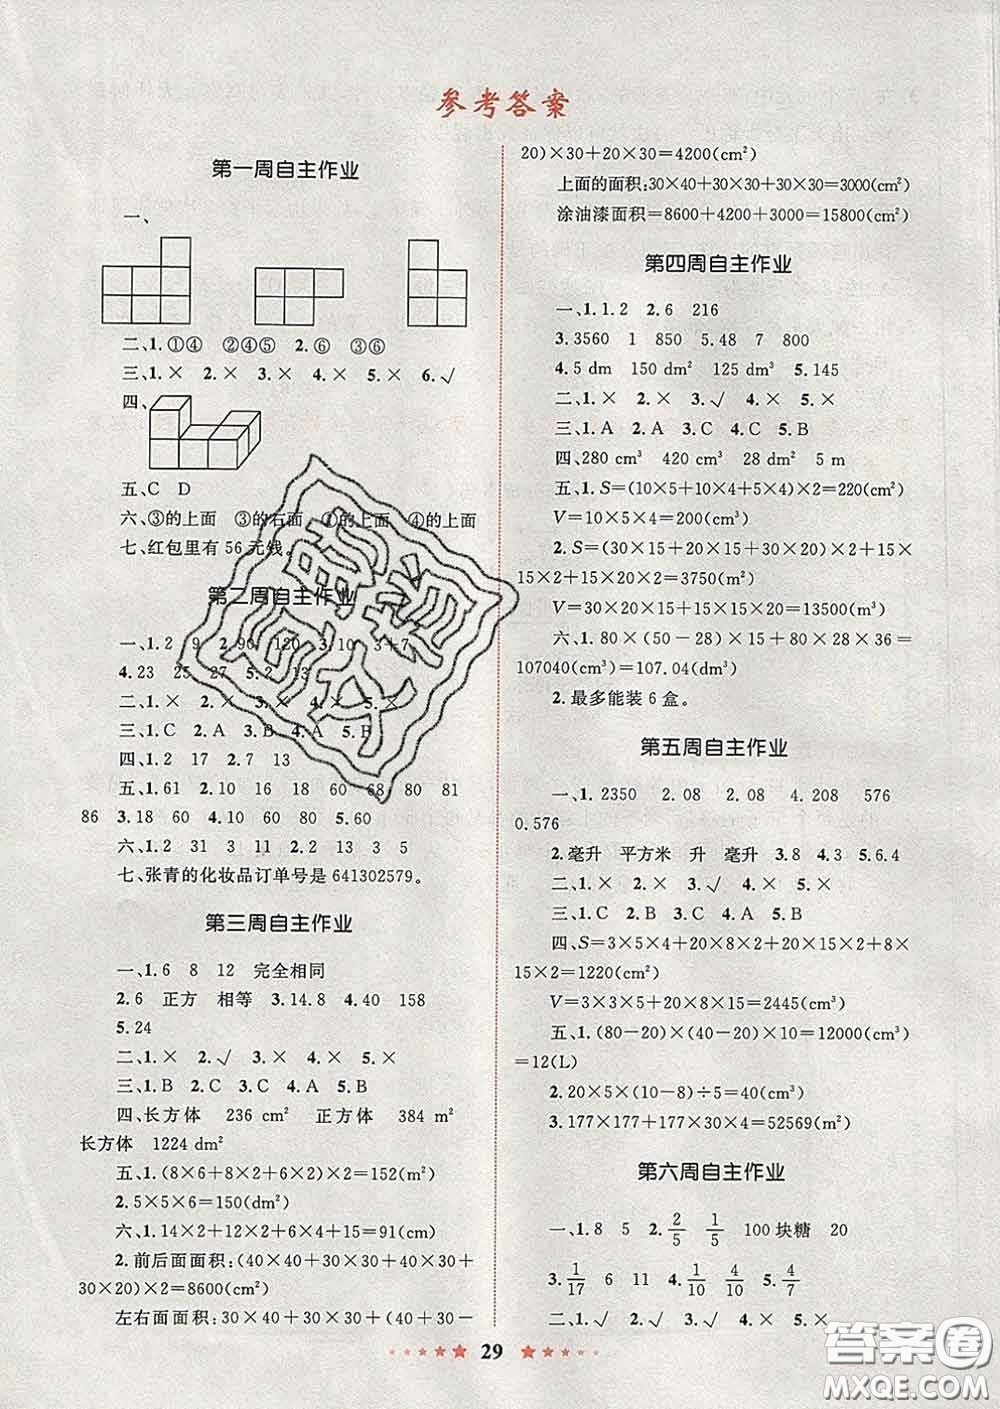 参考答案
第一周自主作业
一、
二、1. ①④ ②④⑤ 2. ⑥ ③⑥
三、1. × 2. × 3. × 4. × 5. × 6. √
四、
五、C D
六、③的上面 ③的右面 ①的上面 ④的上面
七、红包里有 56 元钱。
第二周自主作业
一、1. 2 9 2. 90 120 3. 10 3+7
4. 23 25 27 5. 2 13
二、1. × 2. × 3. × 4. × 5. ×
三、1. C 2. A 3. B 4. A 5. B
四、1. 2 17 2. 7 13
五、1. 61 2. 10 18 60 68 80 81
86 3. 18 60 4. 10 60 80 5. 60
六、1. 2 31 3 2. 2 13 3 5
七、张青的化妆品订单号是 641302579。
第三周自主作业
一、1. 6 8 12 完全相同
2. 6 正方 相等 3. 14.8 4. 40 158
5. 24
二、1. × 2. √ 3. × 4. × 5. ×
三、1. B 2. C 3. B 4. C 5. A
四、长方体 236 cm² 正方体 384 m²
长方体 1224 dm²
五、1. (8×6+8×2+6×2)×2=152(m²)
2. 5×5×6=150(dm²)
六、1. 14×2+12×2+6×4+15=91(cm)
2. 前后面面积:(40×40+30×30+40×30+
30×20)×2=8600(cm²)
左右面面积:30×40+30×30+(40+30-
20)×30+20×30=4200(cm²)
上面的面积:30×40+30×30+30×30=3000(cm²)
涂油漆面积=8600+4200+3000=15800(cm²)
第四周自主作业
一、1. 1.2 2. 6 216
3. 3560 1 850 5.48 7 800
4. 5 dm 150 dm² 125 dm³ 5. 145
二、1. × 2. × 3. √ 4. √ 5. ×
三、1. A 2. A 3. C 4. C 5. B
四、280 cm³ 420 cm³ 28 dm² 5 m
五、1. S=(10×5+10×4+5×4)×2=220(cm²)
V=10×5×4=200(cm³)
2. S=(30×15+20×15+30×20)×2+15×
15×2+15×20×2=3750(m²)
V=30×20×15+20×15×15=13500(m³)
六、1. 80×(50-28)×15+80×28×36=
107040(cm³)=107.04(dm³)
2. 最多能装 6 盒。
第五周自主作业
一、1. 2350 2.08 2.08 4.208 576
0.576
2. 毫升 平方米 升 毫升 3. 8 4. 3 5. 6.4
二、1. × 2. × 3. √ 4. × 5. ×
三、1. C 2. B 3. A 4. C 5. B
四、S=3×5×4+20×8×2+20×15×2+8×
15×2=1220(cm²)
V=3×3×5+20×8×15=2445(cm³)
五、1. (80-20)×(40-20)×10=12000(cm³)
=12(L)
2. 20×5×(10-8)÷5=40(cm³)
3. 177×177+177×30×4=52569(cm²)
第六周自主作业
一、1. 8 5 2. 2/5 1/5 100 块糖 20
3. 1/17 6 11 4. 1/10 4/10 5. 4/7
二、1. √ 2. √ 3. × 4. × 5. √
29
答案圈
MXQE.COM